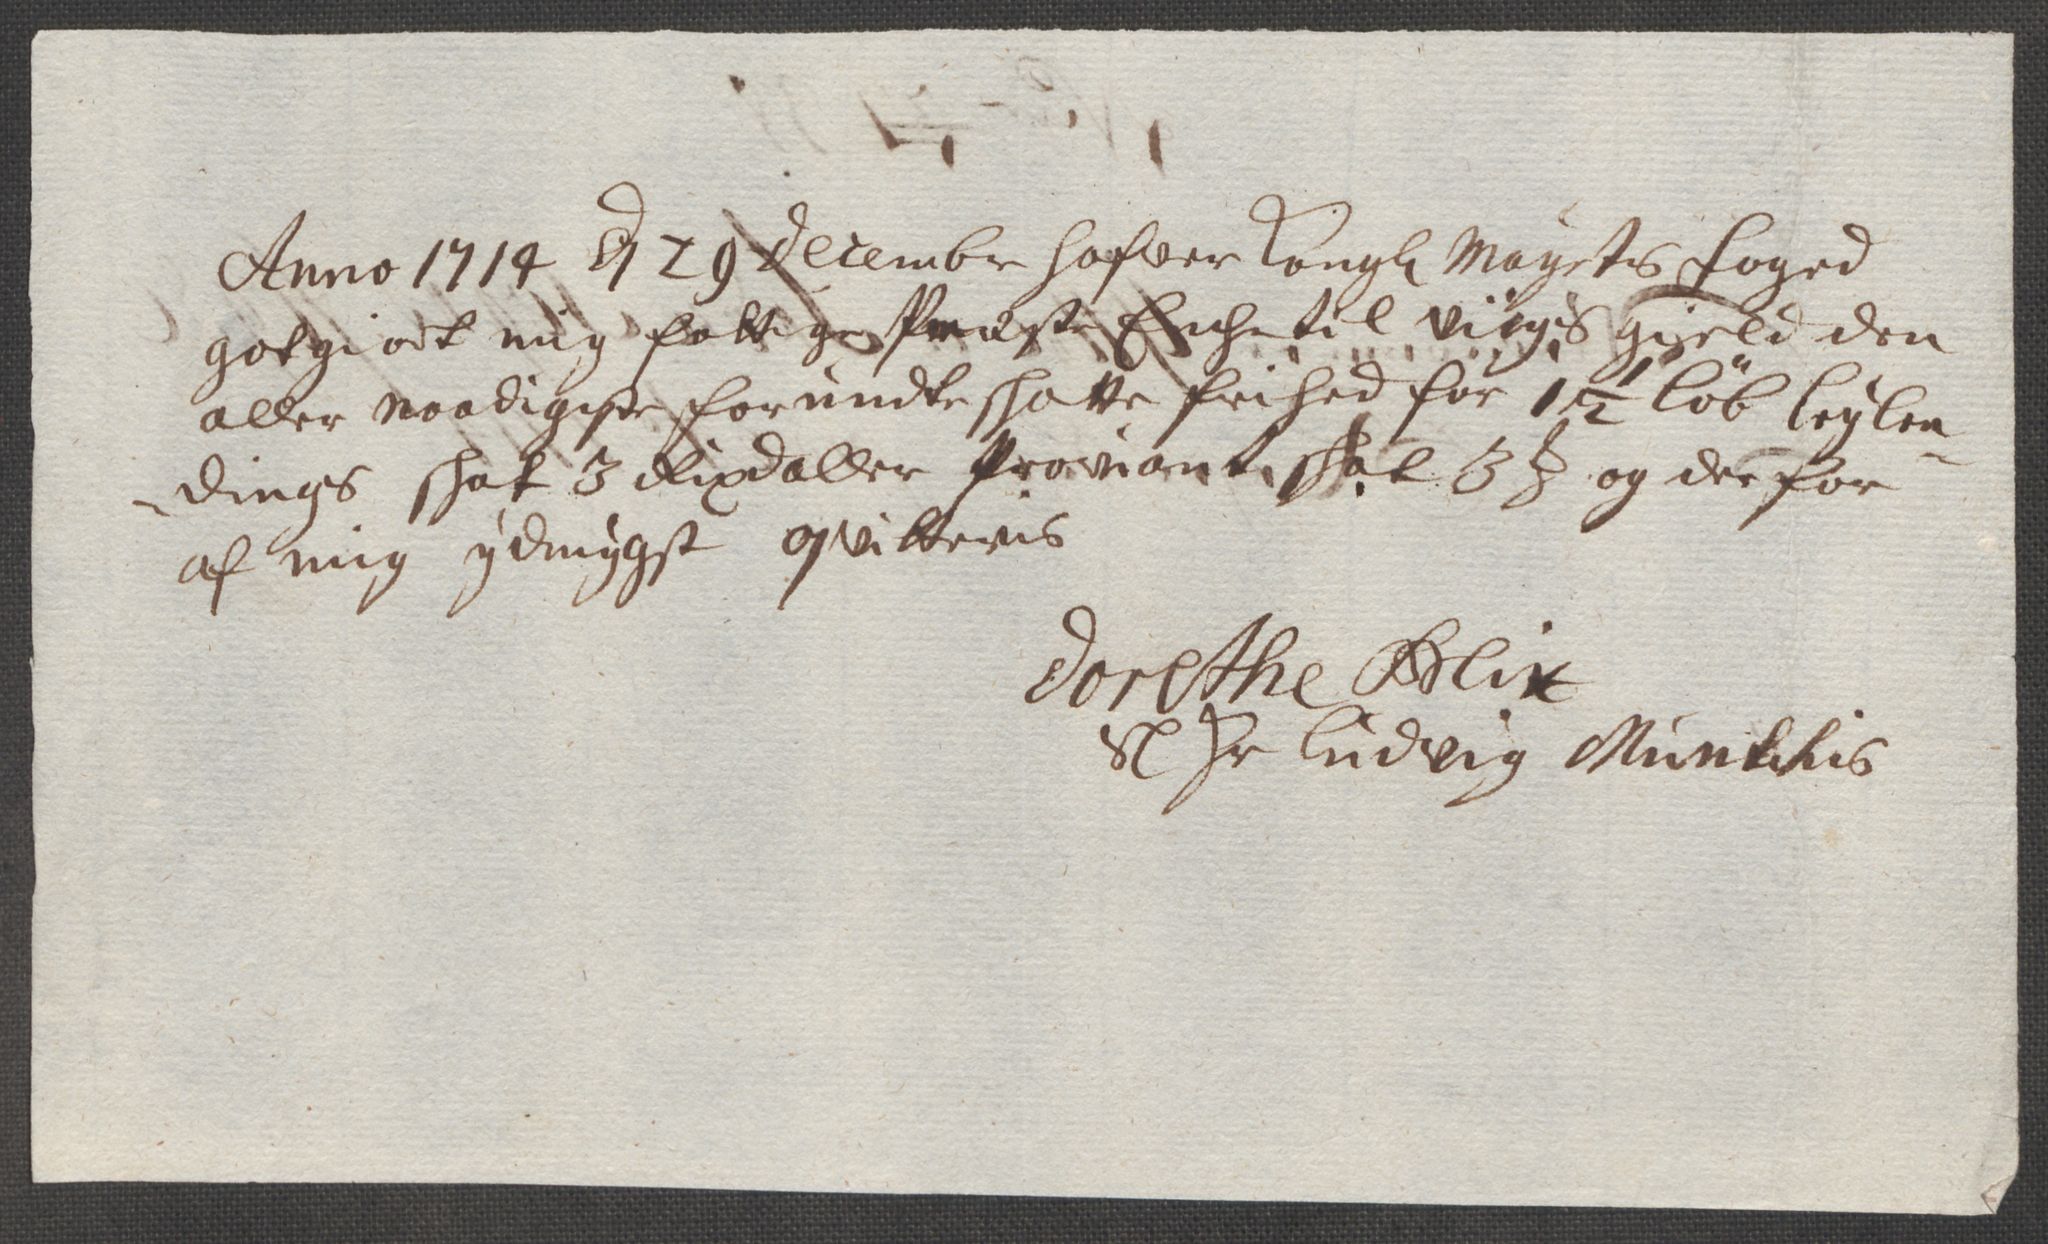 Anno 1714 d 29 decembr hafver Kongl Mayets foged
gotgiort mig fattige Præste Enche til Viigs gield den
aller naadigste forundte skatte frihed for 1 1/2 löb leylen-
-dings skat 3 Rixdaller Proviant skat 3 ß og der for
af mig ydmygst qvitteris
Dorethe Blix
Sl Hr Ludvig Munthis